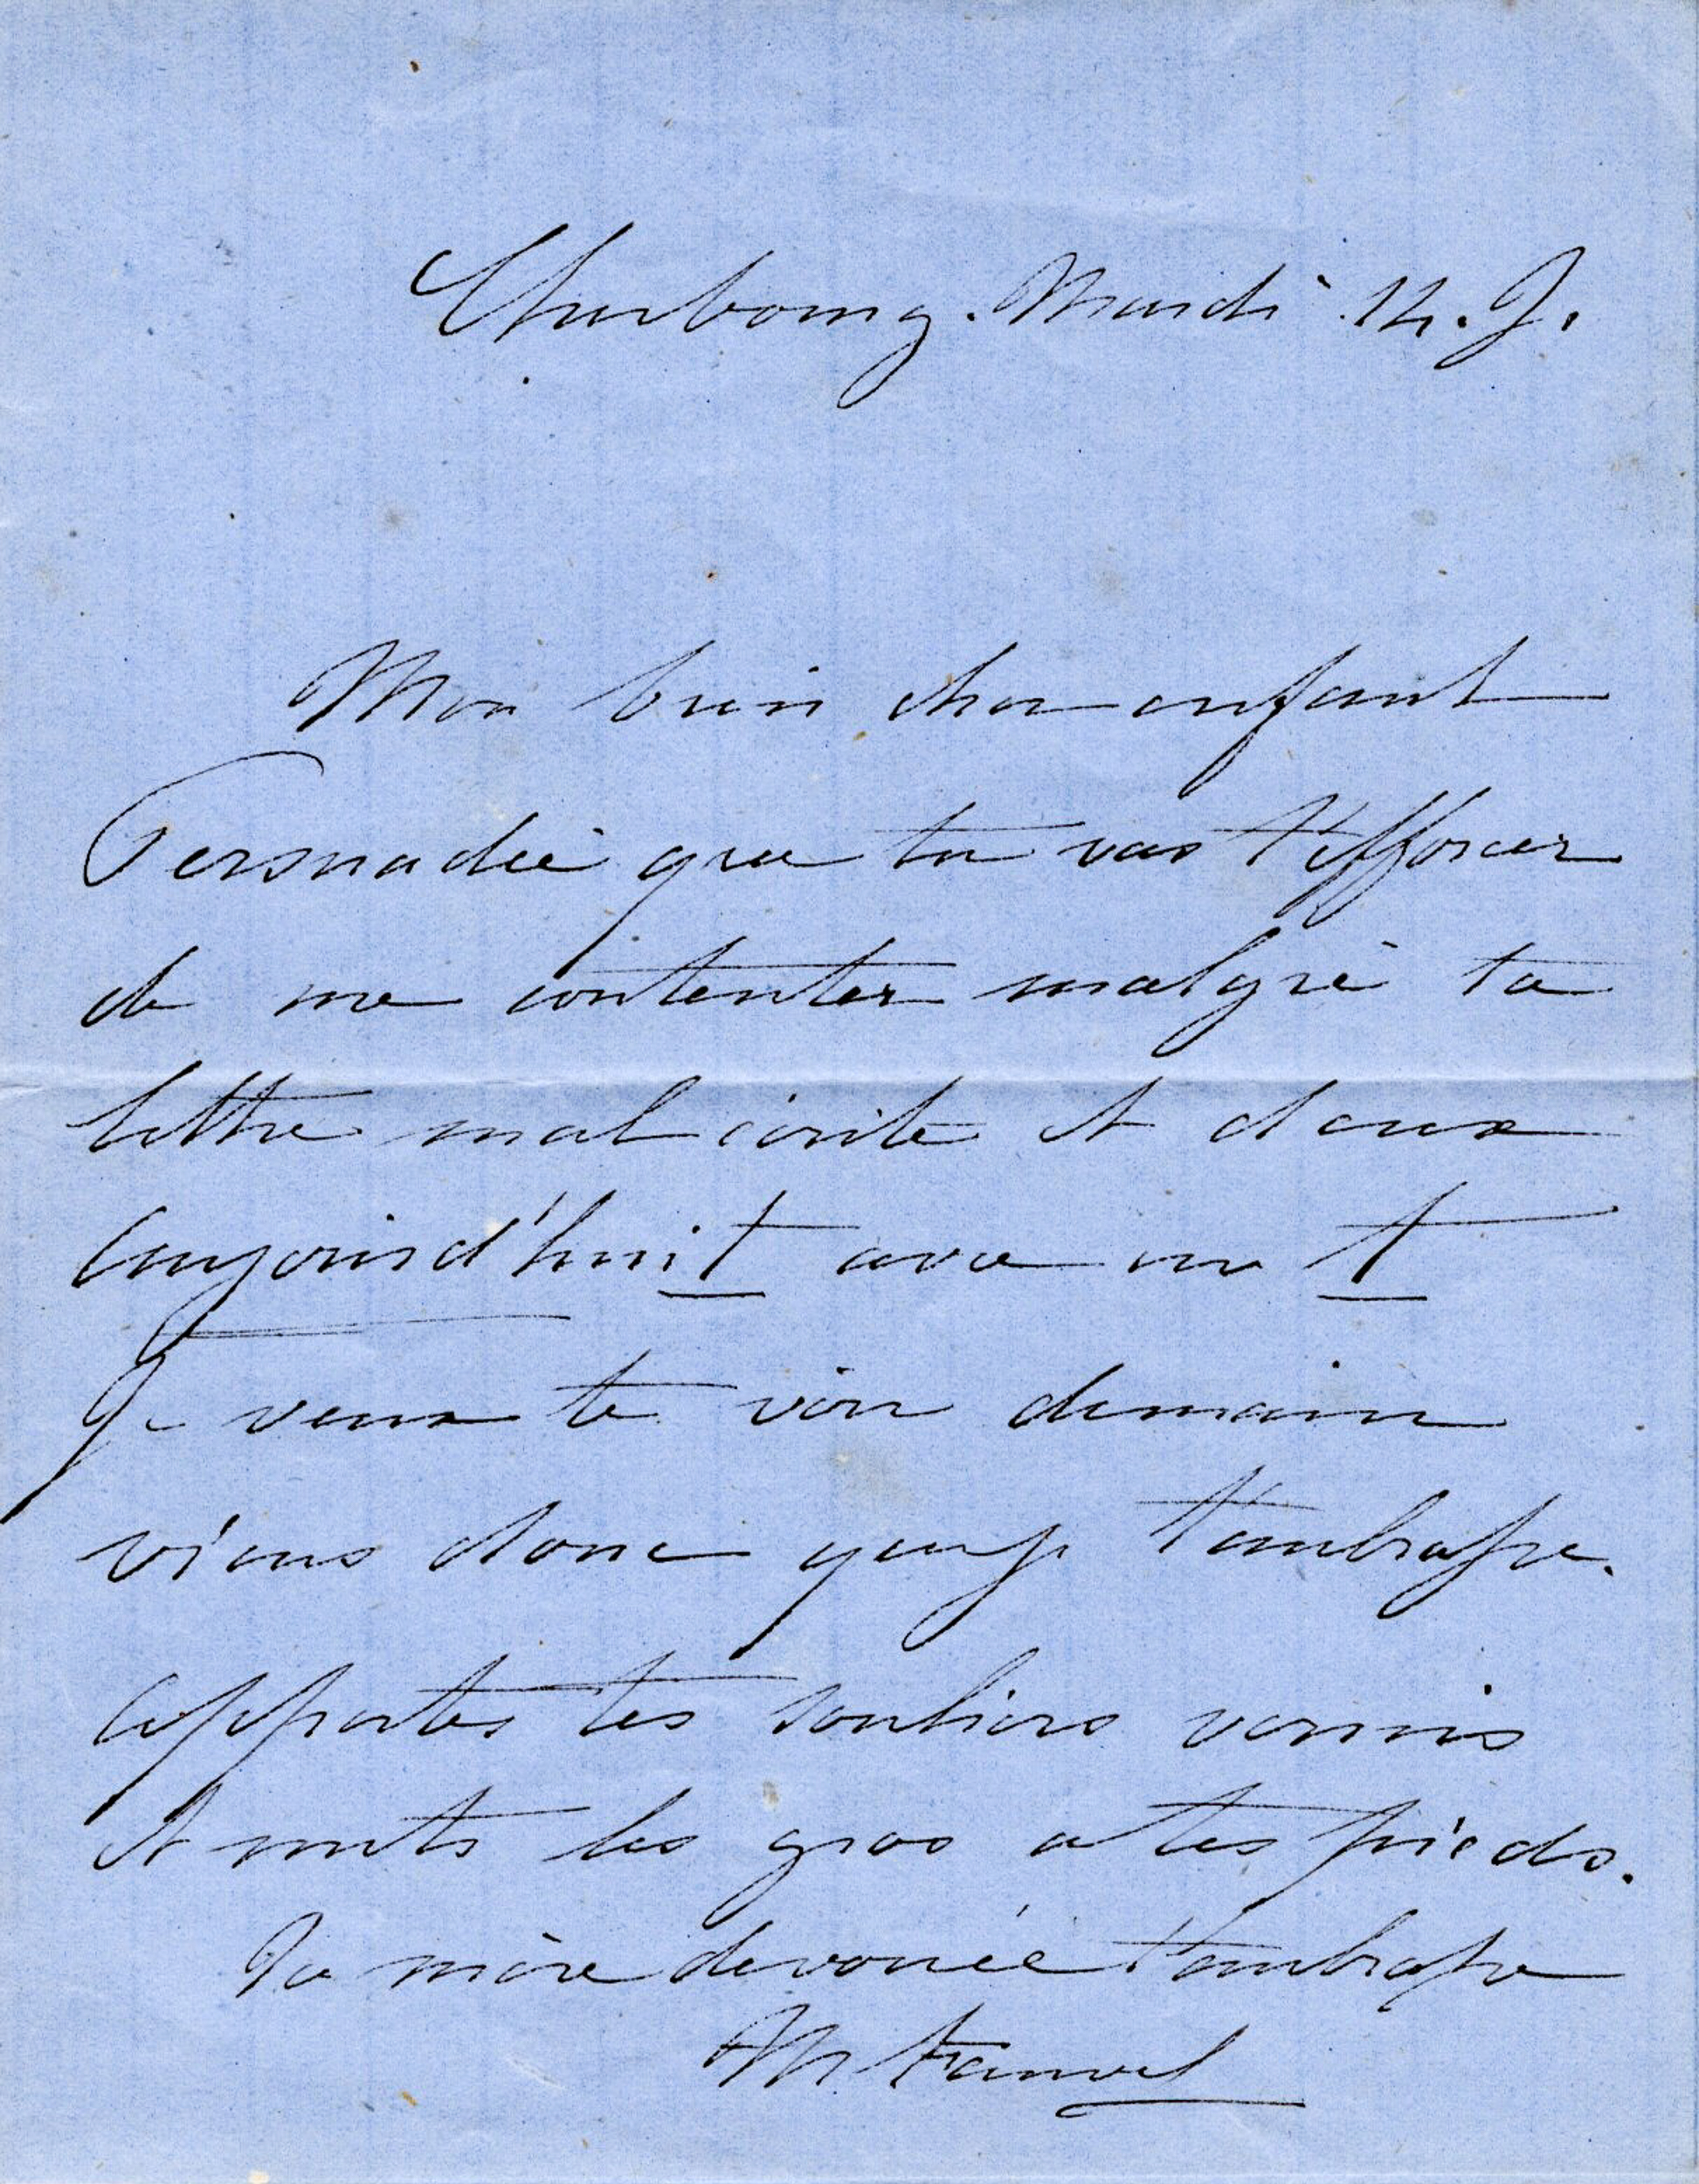 Cherbourg. Mardi 14. J.
Mon bien cher enfant
Persuadée que tu vas t'efforcer
de me contenter malgré ta
lettre mal écrite et deux
aujourd'huit avec un t
Je veux te voir demain
viens donc que je t'embrasse.
apportes tes souliers vernis
et mets les gros a tes pieds.
Ta mère devouée t'embrasse